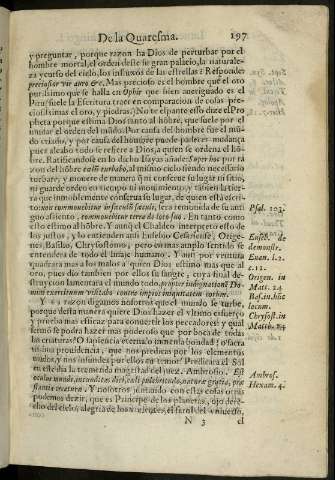 De la Quaresma. 197
y preguntar, porque razon ha Dios de perturbar por el
hombre mortal, el orden deste su gran palacio, la naturale-
za y curso del cielo, los influxos de las estrellas? Responde:
preciosior vir auro &c. Mas precioso es el hombre que el oto
purisimo que se halla en Ophir que bien aueriguado es el
Piru suele la Escritura traer en comparacion de cosas pre-
ciosissimas el oro, y piedras.) No te espante esso dize el Pro
pheta porque estima Dios tanto al hõbre, que suele por el
mudar el orden del mũdo. Por causa del hombre fue el mũ-
do criado, y por causa del hombre puede padecer mudança
pues alcabo todo se refiere a Dios, a quien se ordena el hõ-
bre. Ratificandose en lo dicho Isayas añade: Super hoc por
zon del hõbre cælũ turbabo, al mismo cielo siendo necesario
turbare, y mouere de manera q̃ ni conserue su lugar ni sitio,
ni guarde orden en tiempo ni mouimiento, y tãbien la tier-
ra que inmoblemente conserua su lugar, de quien está escri-
to: non commouebitur in sæculũ sæculi, sera remouida de su anti
guo asiento, commouebitur terra de loco suo. En tanto como
esto estimo al hõbre. Y aunq̃ el Chaldeo interpreto esso de
los justos, y lo mesmo entienden aqui Eusebio Cesariense, Orige-
nes, Basilio, Chrysostomo, pero en mas amplo sentido se
entendera de todo el linaje humano. Y aun por ventura
quadrara mas a los malos a quien Dios estimo mas que al
oro, pues dio tambien por ellos su sangre, cuya final de-
struycion lamentara el mundo todo,
muni exercituum vesticubo contra impios iniquitatum turbine.
Y es razon digamos nosotros que el mundo se turbe,
porque desta manera quiere Dios hazer el vltimo esfuerço
y prueba mas eficaz para conuertir los peccadores? y qual
sermõ se podra hazer mas poderoso que por boca de todas
las criaturas? O sapiencia eterna! o inmensa bondad! o sacra
tissima prouidencia, que nos predicas por los elementos
mudos, y nos infundes por ellos tu temor! Predicara el Sol
en este dia la tremenda magestad del juez. Ambrosio. Est
oculus mundi, iucunditas diei, cæli pulchritudo, naturæ gratia, præ
stantia creaturæ. Y nosotros juntando con estas colas otras
podemos dezir, que es Principe de los planetas, ojo dere-
cho del cielo, alegria de los viuientes, el farol del vniuerso,
N 3 el
Psal. 103.
Euseb. de
demonstr.
Euan. l. 2.
c. 12.
Origen. in
Matt. 24
Bas. in hũc
locum.
Chrysost. in
Matth. 24
Ambros.
Hexam. 4.